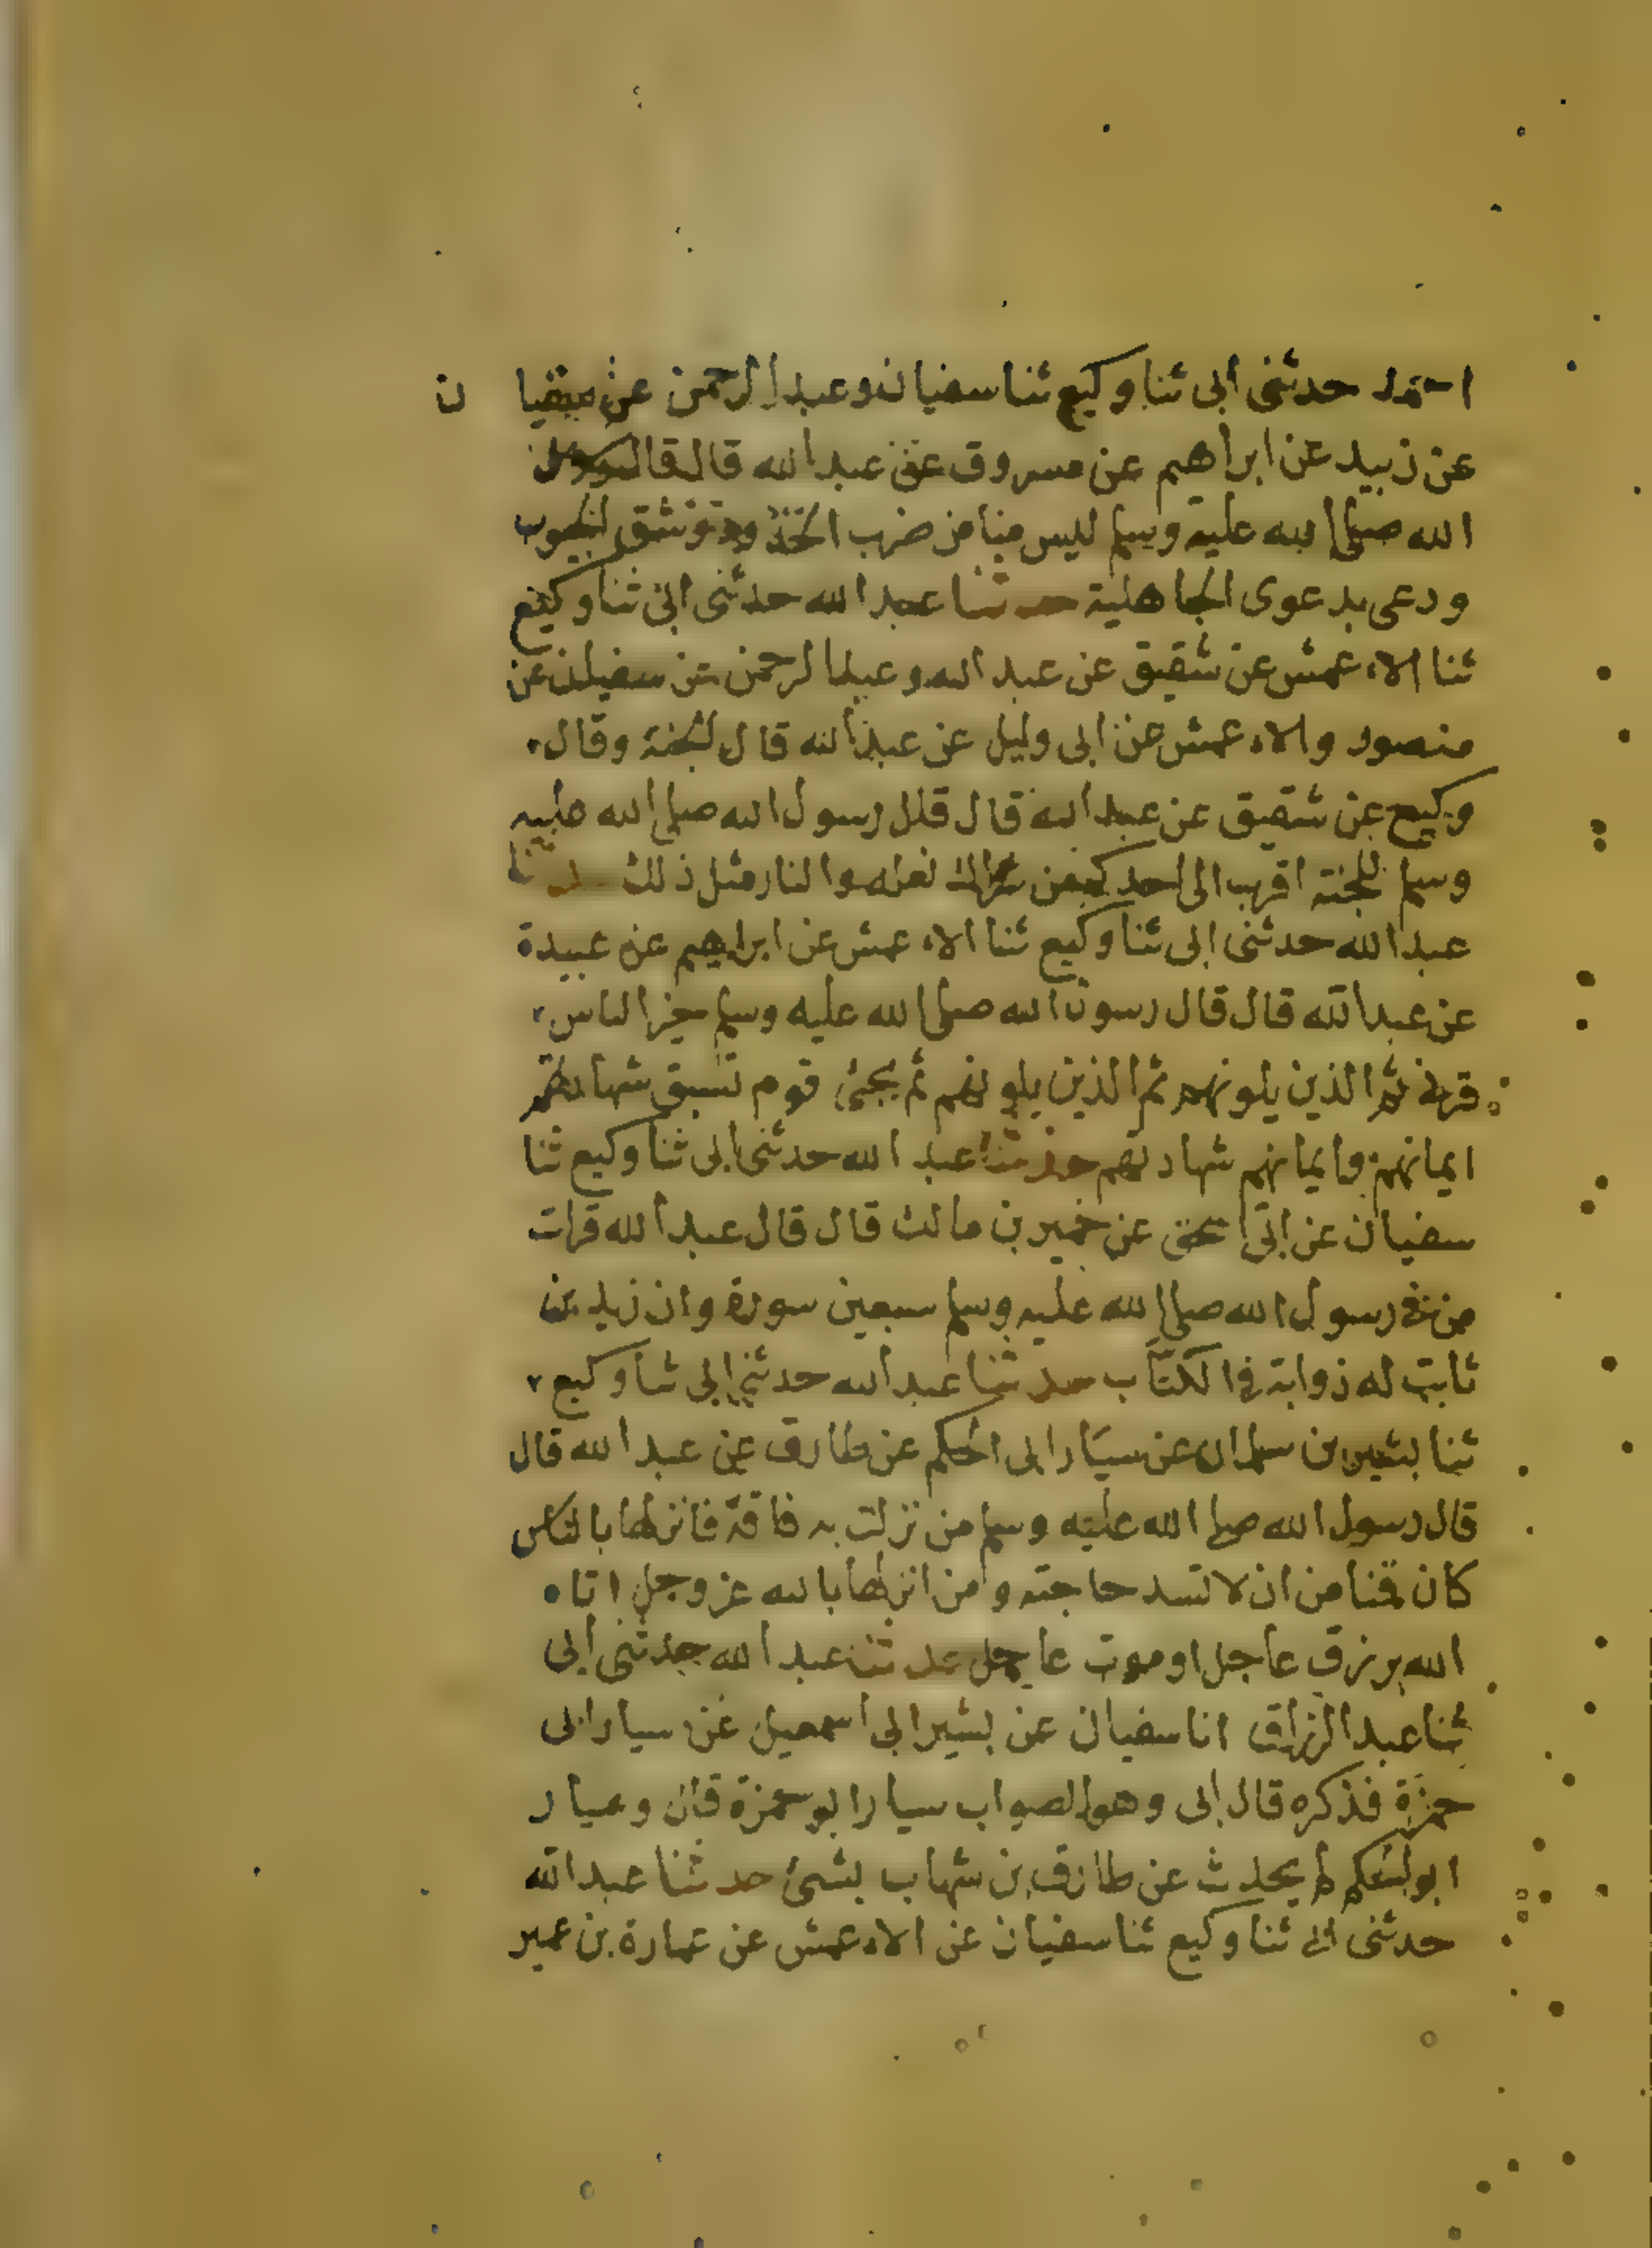 احمد حدثنى ابى ثنا وكيع ثنا سفيان وعبد الرحمن عن سفيان
عن زبيد عن ابراهيم عن مسروق عن عبد الله قال قال رسول
الله صلى الله عليه وسلم ليس منا من ضرب الخدود وشق الجيوب
ودعى بدعوى الجاهلية حدثنا عبد الله حدثنى ابى ثنا وكيع
ثنا الاعمش عن شقيق عن عبد الله وعبد الرحمن عن سفيان عن
منصور والاعمش عن ابى وايل عن عبد الله قال الجنة وقال
وكيع عن شقيق عن عبد الله قال قال رسول الله صلى الله عليه
وسلم للجنة اقرب الى احدكم من شراك نعله والنار مثل ذلك حدثنا
عبد الله حدثنى ابى ثنا وكيع ثنا الاعمش عن ابراهيم عن عبيدة
عن عبد الله قال قال رسول الله صلى الله عليه وسلم خير الناس
قرنى ثم الذين يلونهم ثم الذين يلونهم ثم يجئ قوم تسبق شهادتهم
ايمانهم وايمانهم شهادتهم حدثنا عبد الله حدثنى ابى ثنا وكيع ثنا
سفيان عن ابى اسحق عن خمير بن مالك قال قال عبد الله قرات
من فى رسول الله صلى الله عليه وسلم سبعين سورة وان زيد بن
ثابت له ذوابة فى الكتاب حدثنا عبد الله حدثنى ابى ثنا وكيع
ثنا بشير بن سلمان عن سيار ابى الحكم عن طارق عن عبد الله قال
قال رسول الله صلى الله عليه وسلم من نزلت به فاقة فانزلها بالناس
كان قمنا من ان لا تسد حاجته ومن انزلها بالله عز وجل اتاه
الله برزق عاجل او موت عاجل حدثنا عبد الله حدثنى ابى
ثنا عبد الرزاق انا سفيان عن بشير ابى اسمعيل عن سيار ابى
حمزة فذكره قال ابى وهو الصواب سيار ابو حمزة قال وسيار
ابو الحكم لم يحدث عن طارق بن شهاب بشئ حدثنا عبد الله
حدثنى ابى ثنا وكيع ثنا سفيان عن الاعمش عن عمارة بن عمير